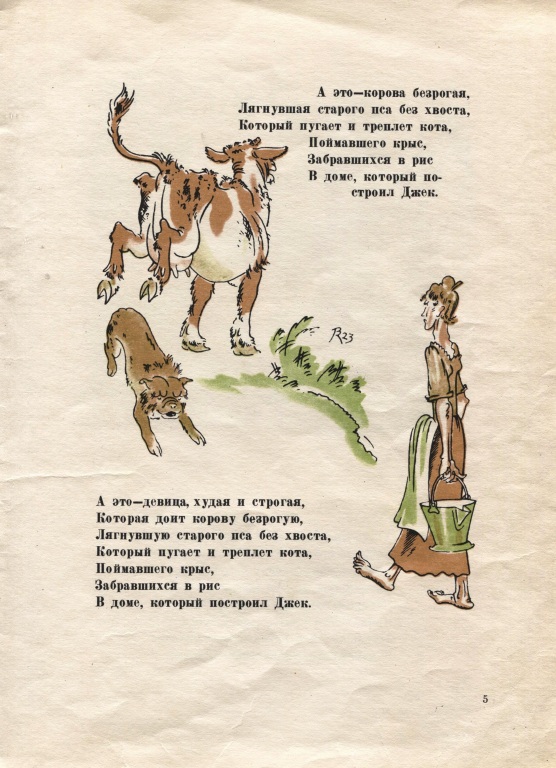 А это—корова безрогая,
Лягнувшая старого пса без хвоста,
Который пугает и треплет кота,
Поймавшего крыс,
Забравшихся в рис
В доме, который по-
строил Джек.
R23
А это—девица, худая и строгая,
Которая доит корову безрогую,
Лягнувшую старого пса без хвоста,
Который пугает и треплет кота,
Поймавшего крыс,
Забравшихся в рис
В доме, который построил Джек.
5